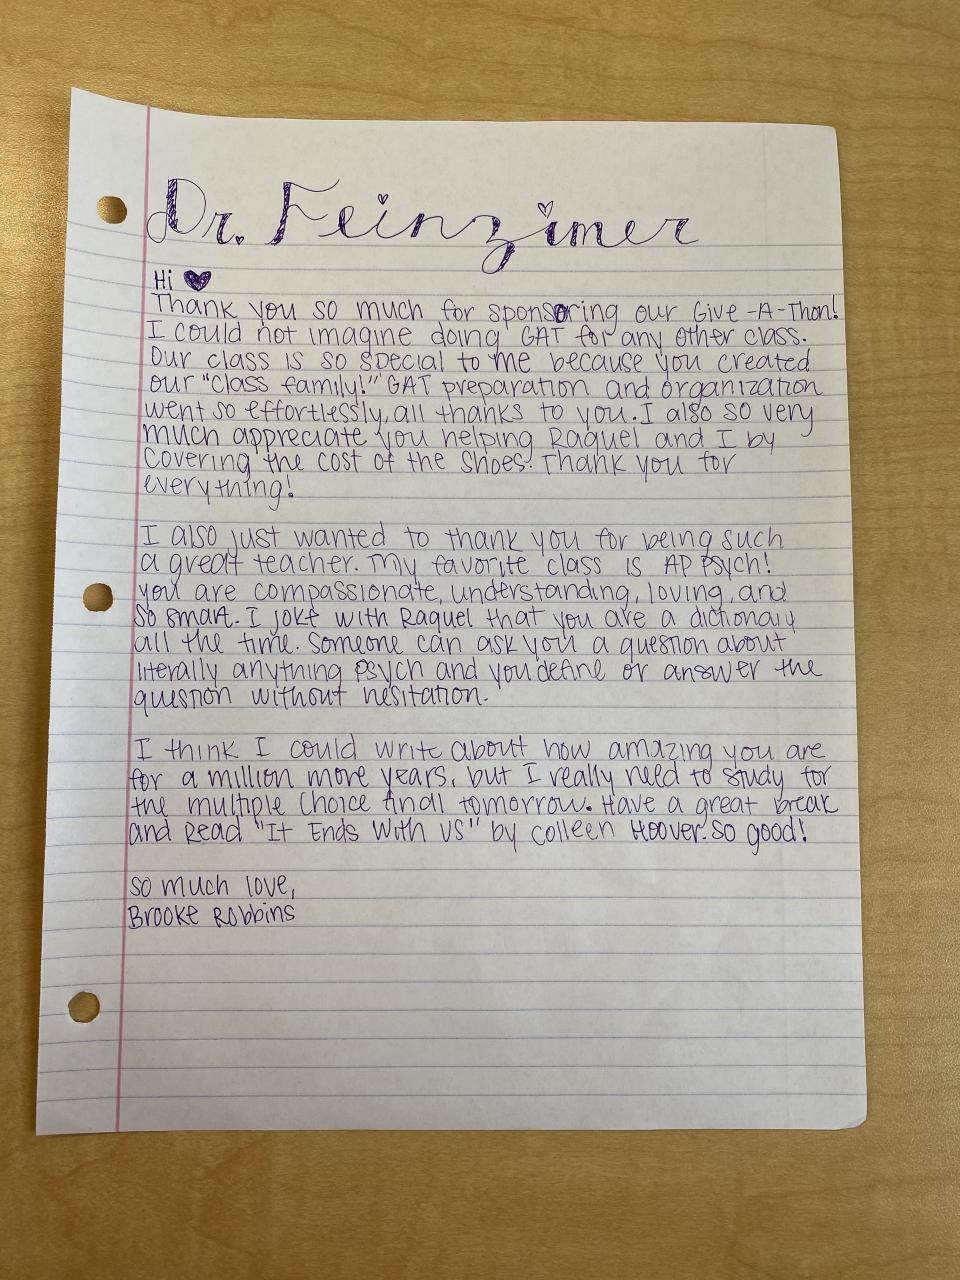 Dr. Feinzimer
Hi ♥
Thank you so much for sponsoring our Give-A-Thon!
I could not imagine doing GAT for any other class.
Our class is so special to me because you created
our "class family!" GAT preparation and organization
went so effortlessly, all thanks to you. I also so very
much appreciate you helping Raquel and I by
covering the cost of the shoes. Thank you for
everything!
I also just wanted to thank you for being such
a great teacher. My favorite class is AP Psych!
you are compassionate, understanding, loving, and
so smart. I joke with Raquel that you are a dictionary
all the time. Someone can ask you a question about
literally anything psych and you define or answer the
question without hesitation.
I think I could write about how amazing you are
for a million more years, but I really need to study for
the multiple choice finall tomorrow. Have a great break
and Read "It Ends With Us" by Colleen Hoover. So good!
so much love,
Brooke Robbins